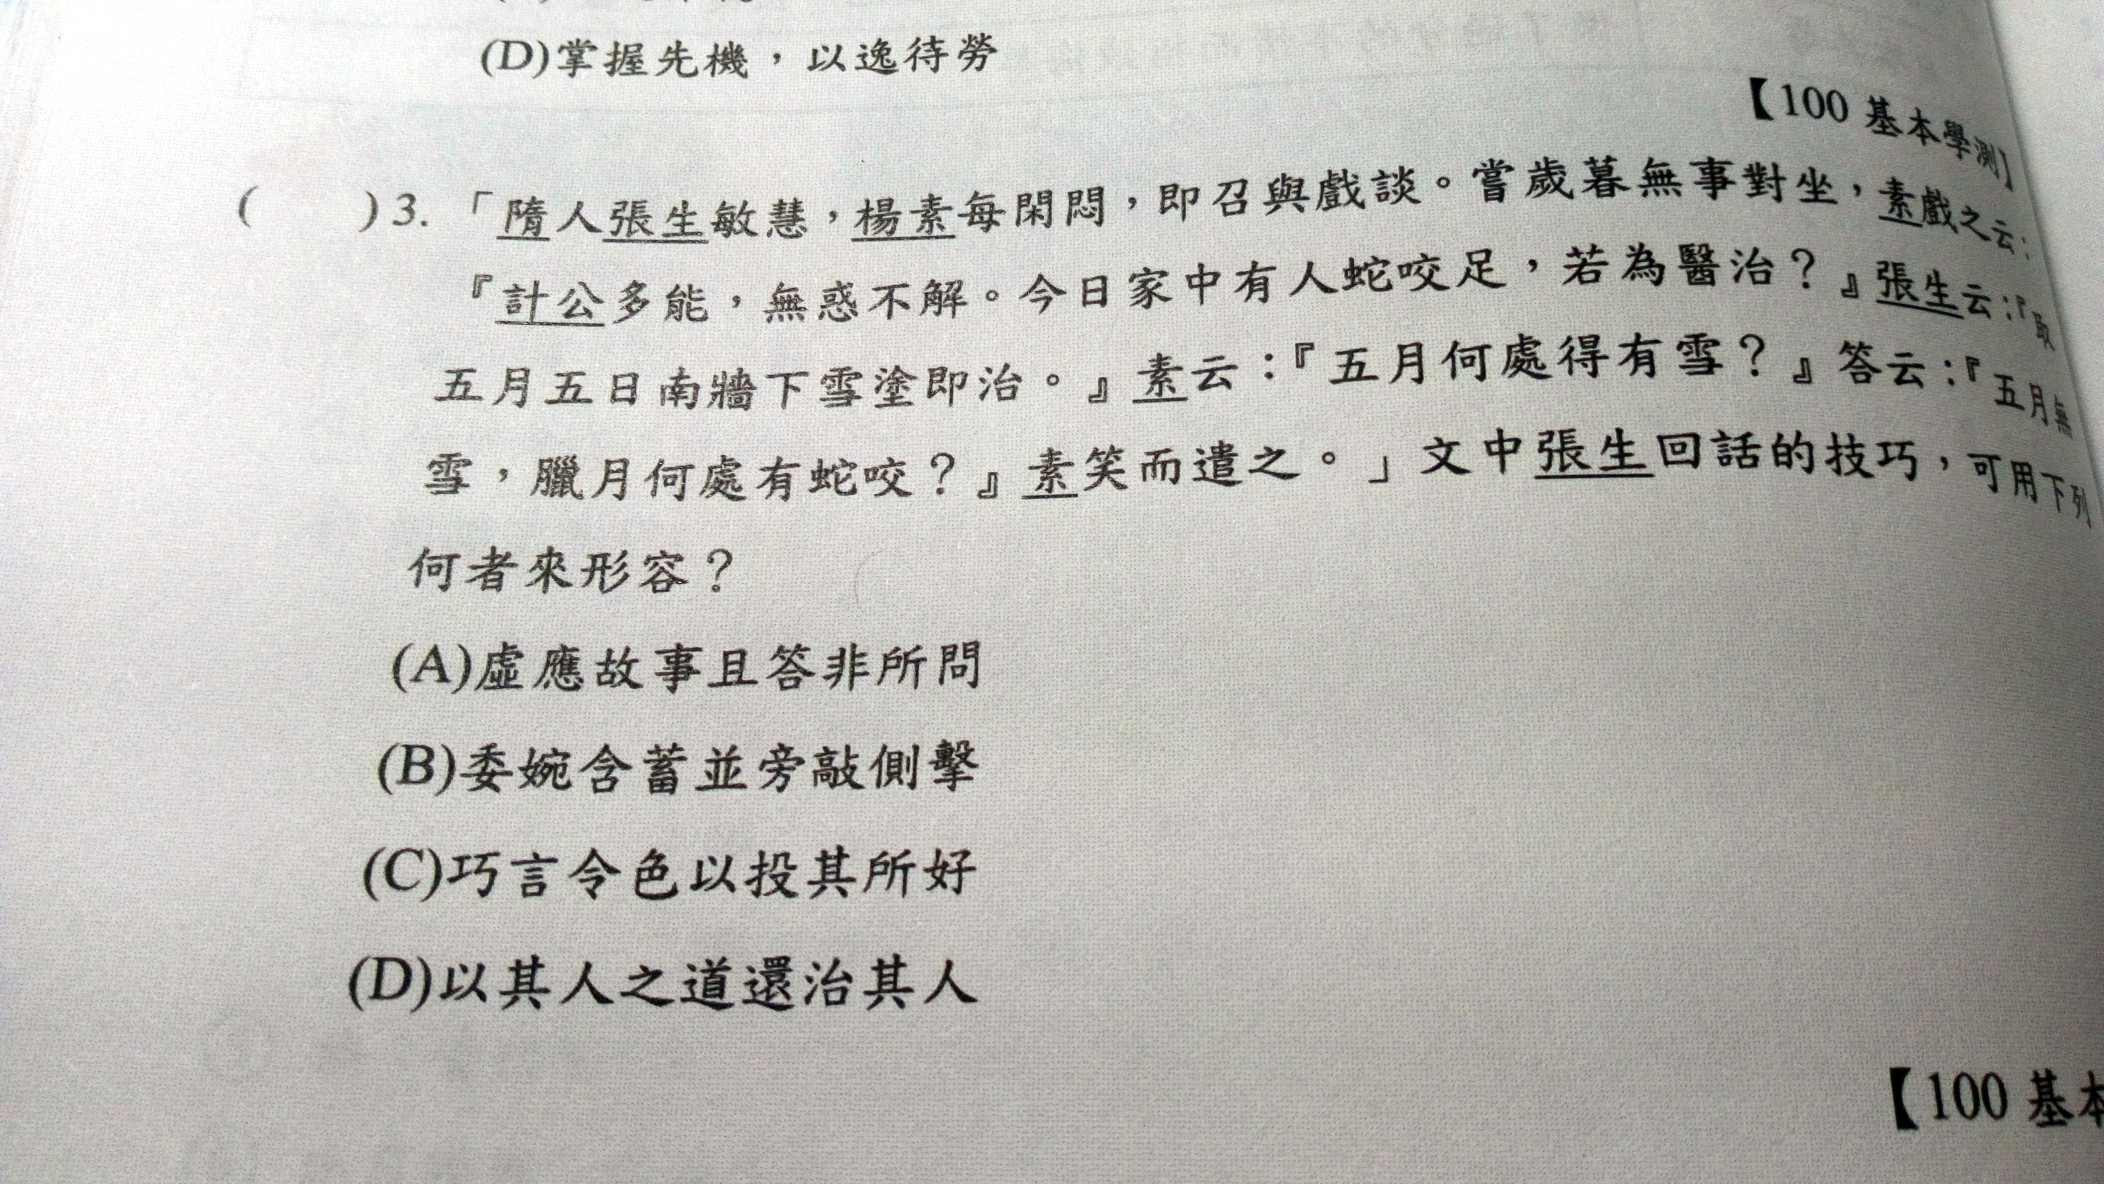 (D)掌握先機，以逸待勞
【100 基本學測】
(　　)3. 「隋人張生敏慧，楊素每閑悶，即召與戲談。嘗歲暮無事對坐，素戲之云：
『計公多能，無惑不解。今日家中有人蛇咬足，若為醫治？』張生云：『取
五月五日南牆下雪塗即治。』素云：『五月何處得有雪？』答云：『五月無
雪，臘月何處有蛇咬？』素笑而遣之。」文中張生回話的技巧，可用下列
何者來形容？
(A)虛應故事且答非所問
(B)委婉含蓄並旁敲側擊
(C)巧言令色以投其所好
(D)以其人之道還治其人
【100 基本